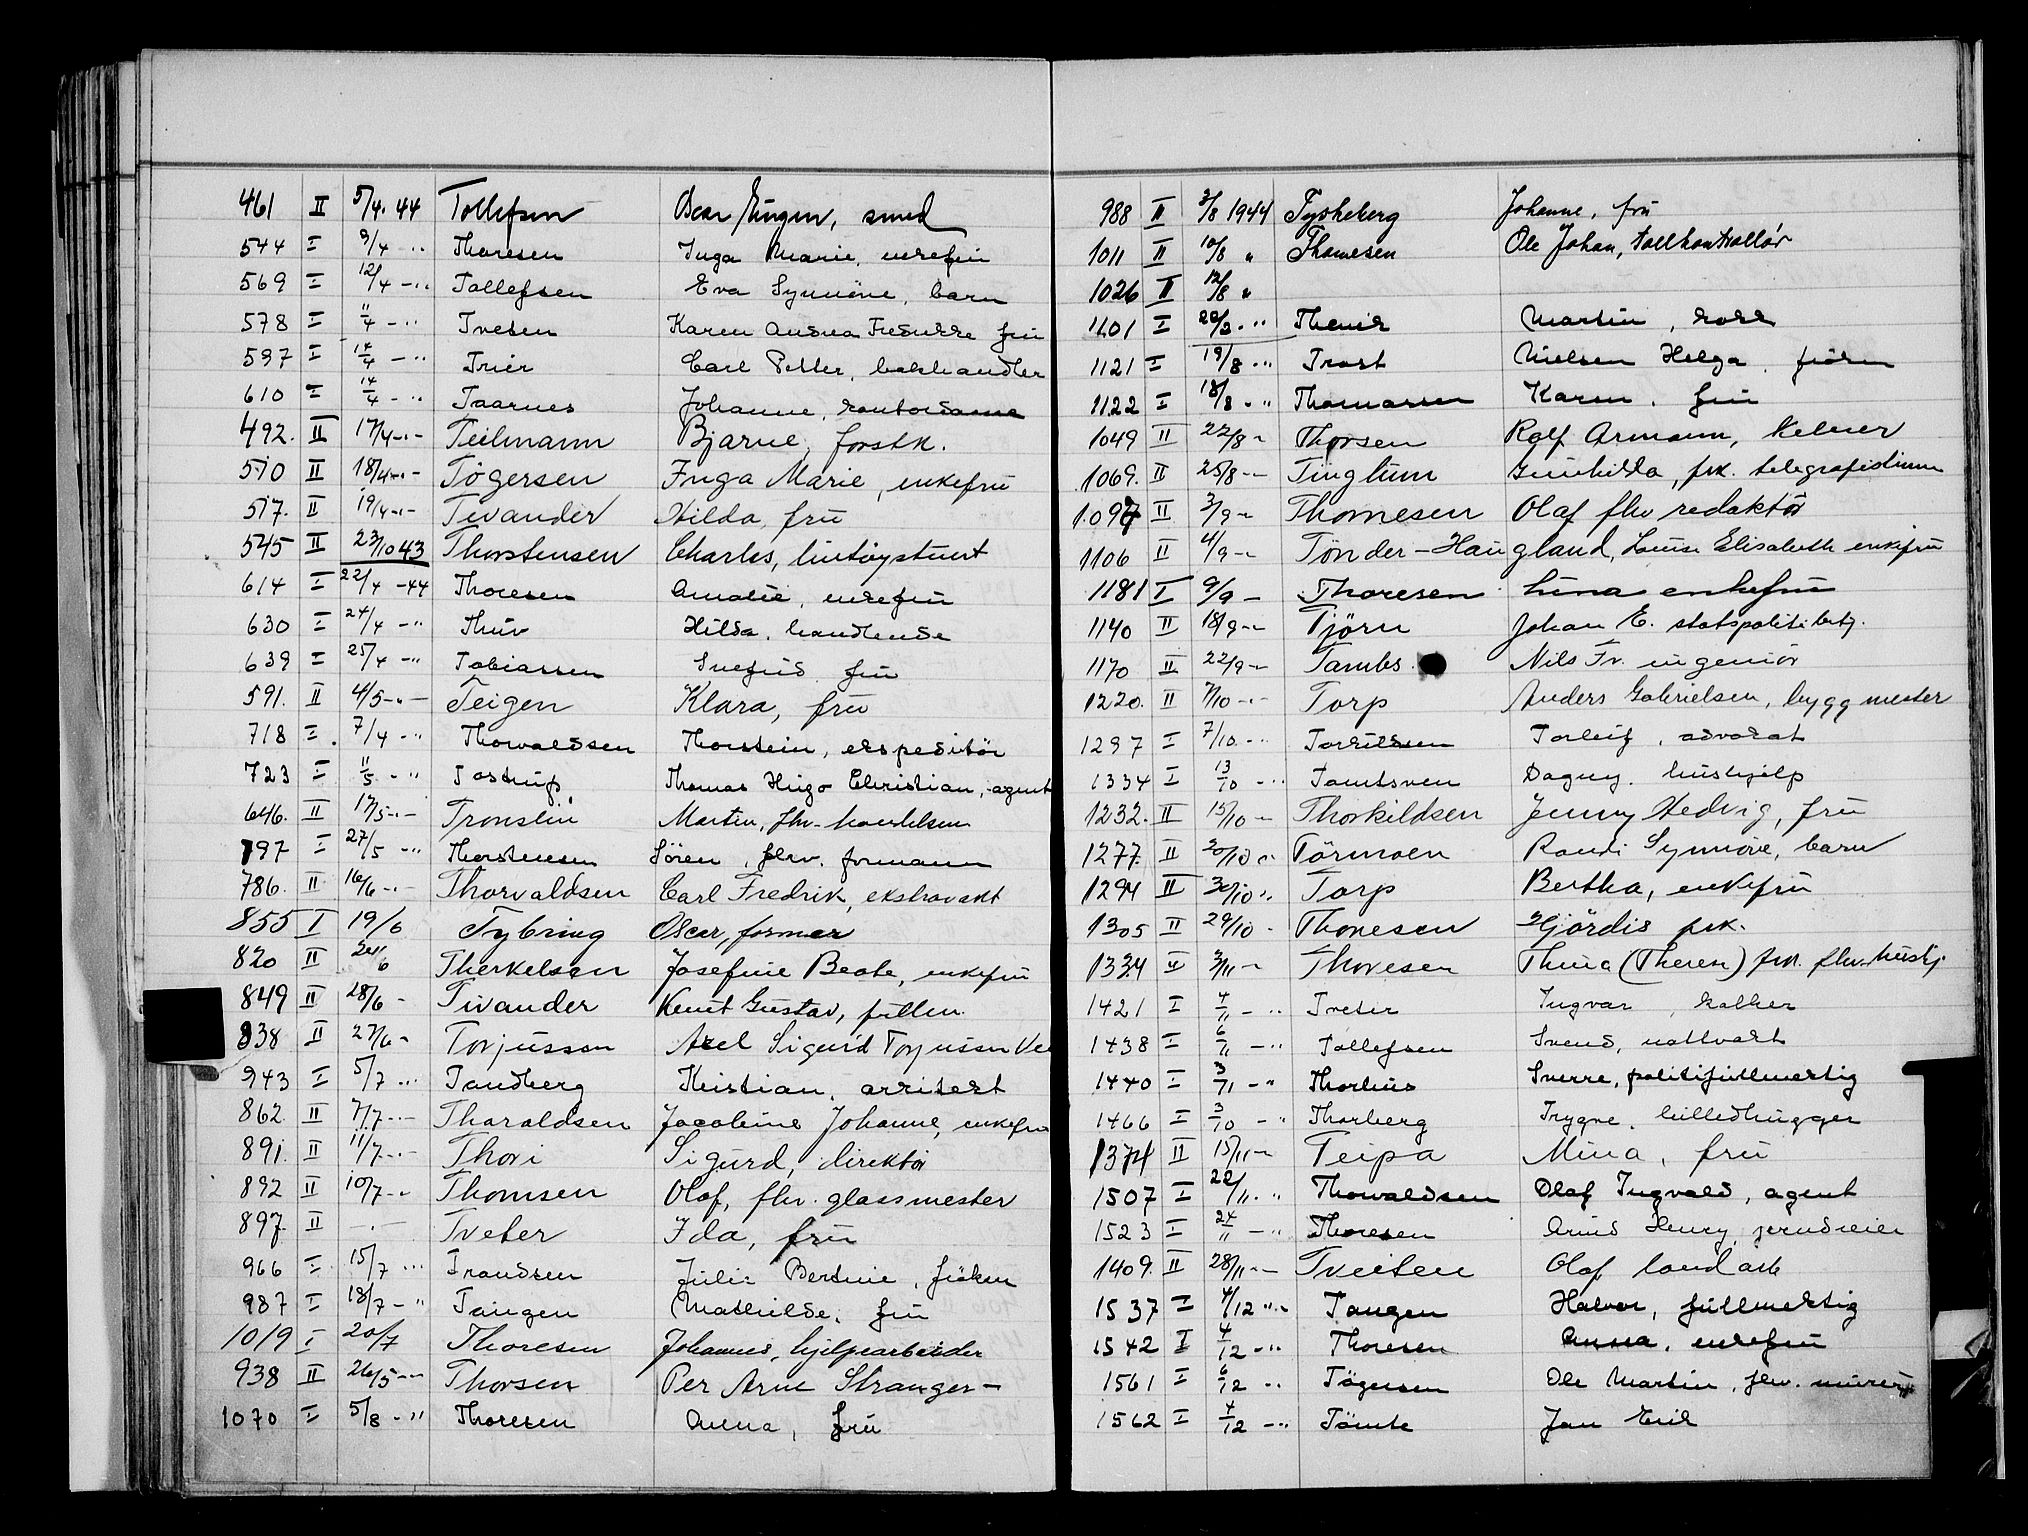 461 II 5/4. 44 Tollefsen Oscar Eugen, smed
544 I 9/4 -" Thoresen Inga Marie, enkefru
569 I 12/4 -" Tollefsen Eva Synnöve, barn
578 I 11/4 -" Tvesen Karen Andrea Fredrikke fru
597 I 14/4 -" Trier Carl Petter, bokhandler
610 I 14/4 -" Taarnes Johanne, kontordame
492. II 17/4 -"- Teilmann Bjarne, forstk.
510 II 18/4 -"- Tögersen Inga Marie, enkefru
517. II 19/4 -"- Tivander Hilda, fru
545 II 23/10 43 Thorstensen Charles, lintöystuert
614 I 22/4 -44 Thoresen Amalie, enkefru
630 I 24/4 -" Thuv Hilda, handlende
639 I 25/4 -" Tobiassen Snefrid fru
591. II 4/5 -"- Teigen Klara, fru
718 I. 7/4 -" Thorvaldsen Thorstein, ekspeditör
723 I 11/5 -" Tostrup Thomas Hugo Christian, agent
646. II 17/5 -"- Tronslin Martin, fhv.
797 I 27/5 -" Thorstensen Sören, fhv. formann
786. II 16/6 -"- Thorvaldsen Carl Fredrik, ekstravakt
855 I 19/6 Tybring Oscar, former
820 II 24/6 Therkelsen Josefine Beate, enkefru
849 II 28/6 - Tivander Knut Gustav, fullm.
838 II 27/6 - Torjussen Axel Sigurd Torjussen
943 I 5/7 -" Tandberg Kristian, arkitekt
862. II 7/7 -"- Tharaldsen Jacobine Johanne, enkefru
891. II 11/7 -"- Thori Sigurd, direktör
892 II 10/7 -" Thomsen Olaf, fhv. glassmester
897. II -"- Tveter Ida, fru
966 I 15/7 -" Trondsen Julie Bertine, fröken
987 I 18/7 -" Tangen Mathilde, fru
1019 I 20/7 Thoresen Johannes, hjelpearbeider
938 II 26/5 -" Thorsen Per Arne Stranger-
1070 I 5/8 -" Thoresen Anna, fru
988 II 3/8 1944 Tyskeberg Johanne, fru
1011 II 10/8 " Thomesen Ole Johan, tollkontrollör
1026 II 12/8 "
1101 I -" Martin, kokk
1121 I 19/8 -" Trost Nielsen Helga, fröken
1122 I 18/8 -" Thomassen Karen, fru
1049 II 22/8 - Thorsen Rolf Armann, Kelner
1069. II 25/8 -- Tinglum Gunhilda, frk. telegrafistinne
1097 II 3/9 - Thomesen Olaf fhv redaktör
1106 II 4/9 -- Tönder-Haugland, Louise Elisabeth enkefru
1181 I 9/9 - Thoresen Lina enkefru
1140 II 18/9 -- Tjörn Johan E. statspolitibetj.
1170 II 22/9 -- Tambs Nils Fr. ingeniör
1220. II 7/10 -"- Torp Anders Gabrielsen, byggmester
1297 I 7/10. -" Torkildsen Torleif, advokat
1334 I 13/10 -" Tomtsven Dagny. hushjelp
1232. II 15/10 -- Thorkildsen Jenny Hedvig, fru
1277. II 20/10 -" Törmoen Randi Synnöve, barn
1294 II 30/10 -" Torp Bertha, enkefru
1305 II 29/10 - Thoresen Hjördis frk.
1334 II 3/11 -- Thoresen Thina (Therese) frk. fhv. hushj.
1421 I 4/11 -" Tveter Ingvar
1438 I 6/11 -" Tollefsen Svend, nattvakt
1440 I 3/11 -" Thorhus Sverre, politifullmektig
1466 I 3/10 -" Thorberg Trygve, billedhugger
1374 II 15/11 -- Teipa Mina, fru
1507 I 22/11. -" Thorvaldsen Olaf Ingvald, agent
1523 I 24/11 -" Thoresen Arvid Henry, jerndreier
1409. II 28/11 -- Tveiten Olaf landark
1537 I 4/12 -" Tangen Halvor, fullmektig
1542 I 4/12 -" Thoresen Anna, enkefru
1561 I 6/12 -" Tögersen Ole Martin, fhv. murer
1562 I 4/12 -" Tömte Jan Erik